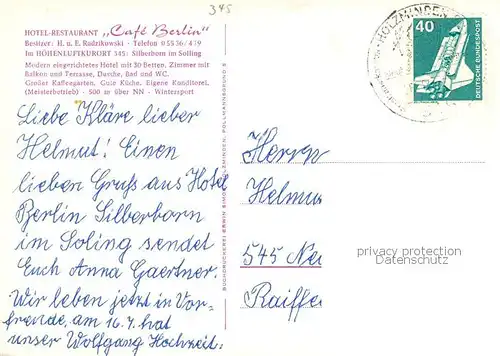 345
HOTEL-RESTAURANT „Café Berlin"
Besitzer: H. u. E. Radzikowski - Telefon 0 55 36 / 419
Im HÖHENLUFTKURORT 345: Silberborn im Solling
Modern eingerichtetes Hotel mit 30 Betten. Zimmer mit
Balkon und Terrasse, Dusche, Bad und WC.
Großer Kaffeegarten. Gute Küche. Eigene Konditorei.
(Meisterbetrieb) - 500 m über NN - Wintersport
HOLZMINDEN
40
DEUTSCHE BUNDESPOST
Liebe Kläre lieber
Helmut! Einen
lieben Gruß aus Hotel
Berlin Silberborn
im Soling sendet
Euch Anna Gaertner.
Wir leben jetzt in Vor-
freude, am 16.7. hat
unser Wolfgang Hochzeit.
Herrn
Helmu
545 Neu
Raiffe
privacy protection
Datenschutz